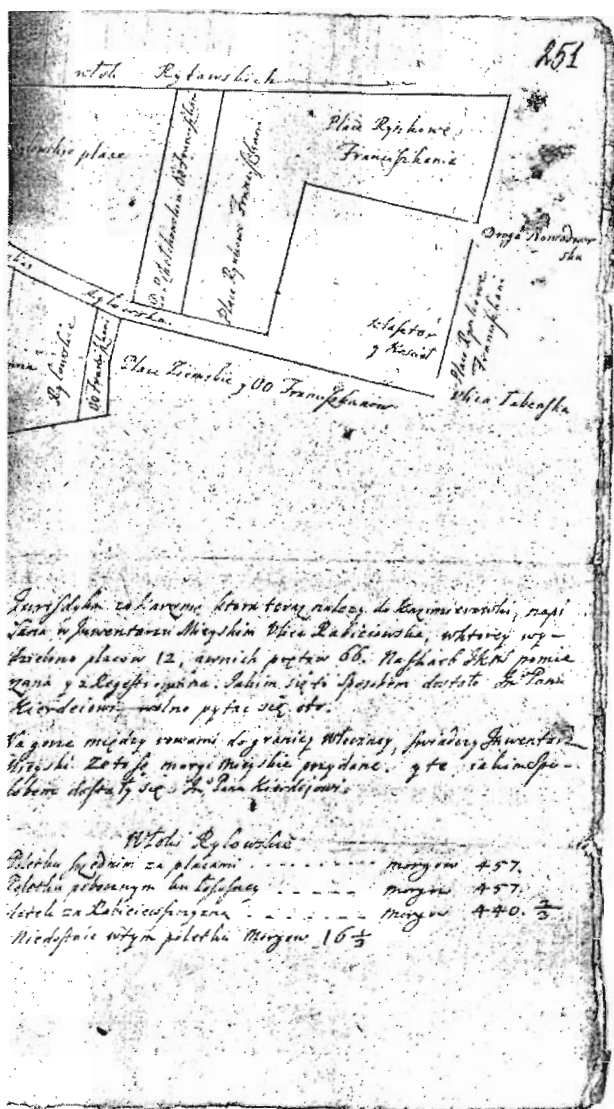 251
włoki Ryławskich
Place Rynkowe
Franciszkania
Rylowskie place
OO Franciszkani
Place Rynkowe Franciszkani
Droga Nowodwor
ska
Rylowska
Klasztor
y Kościół
Place Rynkowe
Franciszkani
Rylowskie
OO Franciszkani
Place Ziemskie y OO Franciszkanow
Vlica Labenska
Jurisdyka za karczmą ktora teraz należy do Kazimierowki, napi
sana w Juwentarzu Mieyskim Vlica Rabiciowska, w ktorey wy-
dzielino placow 12, a w nich prętow 66. Na placach JKM pomie
rzana y z Regestrowana. Jakim się to sposobem dostało Jm Panu
Kierdeiowi, wolno pytac się oto.
Na gorze między rowami do graniey włoczney, swiadczy Juwentarz
Mieyski że to są morgi mieyskie przydane. y te iakim spo-
sobem dostały się Jm Pana Kierdejowi.
Włoki Rylowskie
Poletku srzednim za placami morgow 457.
Poletku pobocznym ku Łososney morgow 457.
za Rabiciewszczyzną morgow 440. 2/3
Niedostaie w tym poletku Morgow 16 1/3